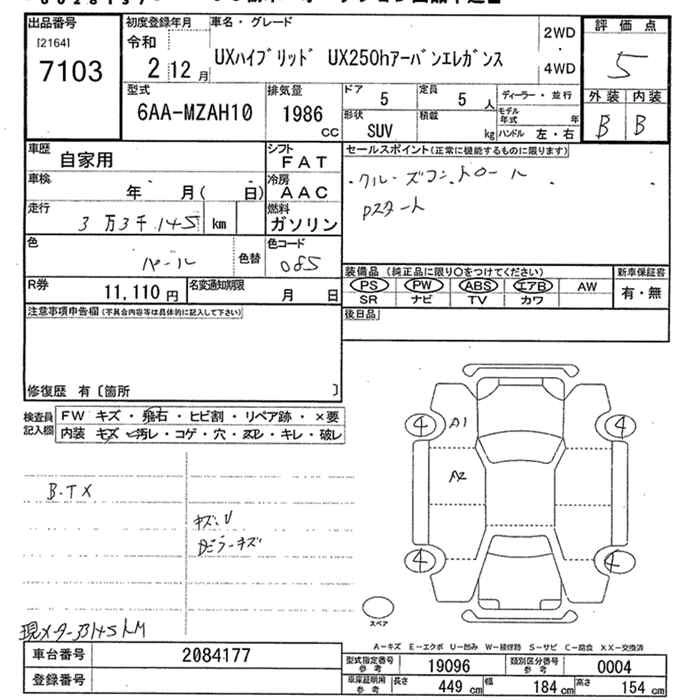 出品番号
[2164]
7103
初度登録年月
令和
2 12月
車名・グレード
UXハイブリッド UX250hアーバンエレガンス
2WD
・
4WD
評価点
5
外装 内装
B B
型式
6AA-MZAH10
排気量
1986
cc
ドア 5
定員 5 人
形状 SUV
積載 kg
ディーラー・並行
モデル年式 年
ハンドル 左・右
車歴
自家用
シフト
FAT
車検 年 月( 日)
冷房
AAC
走行 3万3千145 km
燃料
ガソリン
色 パール 色替
色コード
085
R券
11,110円
名変通知期限
月 日
セールスポイント(正常に機能するものに限ります)
・クルーズコントロール ・ ・
Pスタート
装備品 (純正品に限り○をつけてください)
PS PW ABS エアB AW
SR ナビ TV カワ
新車保証書
有・無
後日品
注意事項申告欄(不具合内容等は具体的に記入して下さい)
修復歴 有〔箇所 〕
検査員記入欄
FW キズ・飛石・ヒビ割・リペア跡・×要
内装 キズ・汚レ・コゲ・穴・スレ・キレ・破レ
B.TX
キズ、U
現メーター33145KM
4 4
A1
A2
4 4
スペア
A-キズ E-エクボ U-凹み W-補修跡 S-サビ C-腐食 XX-交換済
車台番号 2084177
登録番号
型式指定番号 参考 19096
類別区分番号 参考 0004
車庫証明用 参考 長さ 449 cm 幅 184 cm 高さ 154 cm